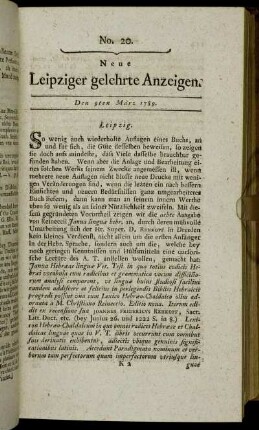 No. 20.
Neue
Leipziger gelehrte Anzeigen.
Den 9ten März 1789.
Leipzig.
So wenig auch wiederholte Auflagen eines Buchs, an
und für sich, die Güte desselben beweisen, so zeigen
sie doch aufs mindeste, daß Viele dasselbe brauchbar ge-
funden haben. Wenn aber die Anlage und Bearbeitung ei-
nes solchen Werks seinem Zwecke angemessen ist, wenn
mehrere neue Auflagen nicht blosse neue Drucke mit weni-
gen Veränderungen sind, wenn die letzten ein nach bessern
Einsichten und unsern Bedürfnissen ganz umgearbeitetes
Buch liefern, dann kann man an seinem innern Werthe
eben so wenig als an seiner Nützlichkeit zweifeln. Mit die-
sem gegründeten Vorurtheil zeigen wir die achte Ausgabe
von Reineccii Janua linguae hebr. an, durch deren mühvolle
Umarbeitung sich der Hr. Super. D. Rehkopf in Dresden
kein kleines Verdienst, nicht allein um die ersten Anfänger
in der Hebr. Sprache, sondern auch um die, welche bey
noch geringen Kenntnissen und Hülfsmitteln eine cursori-
sche Lectüre des A. T. anstellen wollen, gemacht hat.
Janua Hebraeae linguae Vet. Test. in qua totius codicis Hebraei
vocabula una cum radicibus et grammatica vocum difficilio-
rum analysi comparent, ut linguae huius studiosi facilius
eandem addiscere et felicius in perlegendis Bibliis Hebraicis
progredi possint una cum Lexico Hebraeo-Chaldaico olim ad-
ornata a M. Christiano Reineccio. Editio nova. Iterum edidit
ac recensuit suo Joannes Fridericus Rehkopf, Sacr.
Litt. Doct. etc. (bey Junius 26. und 1222 S. in 8.) Lexi-
con Hebraeo-Chaldaicum in quo omnes radices Hebraeae et Chal-
daicae linguae quae in V. T. libris occurrunt cum vocibus
suis derivatis exhibentur, adiectis ubique genuinis signifi-
cationibus latinis. Accedunt Paradigmata nominum et ver-
borum tam perfectorum quam imperfectorum utriusque lin-
K 2 guae